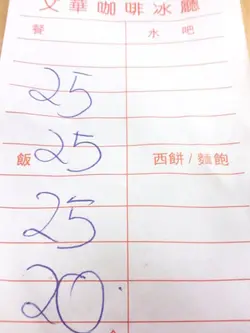 文華咖啡冰廳
餐 水吧
25
飯 25 西餅/麵飽
25
20